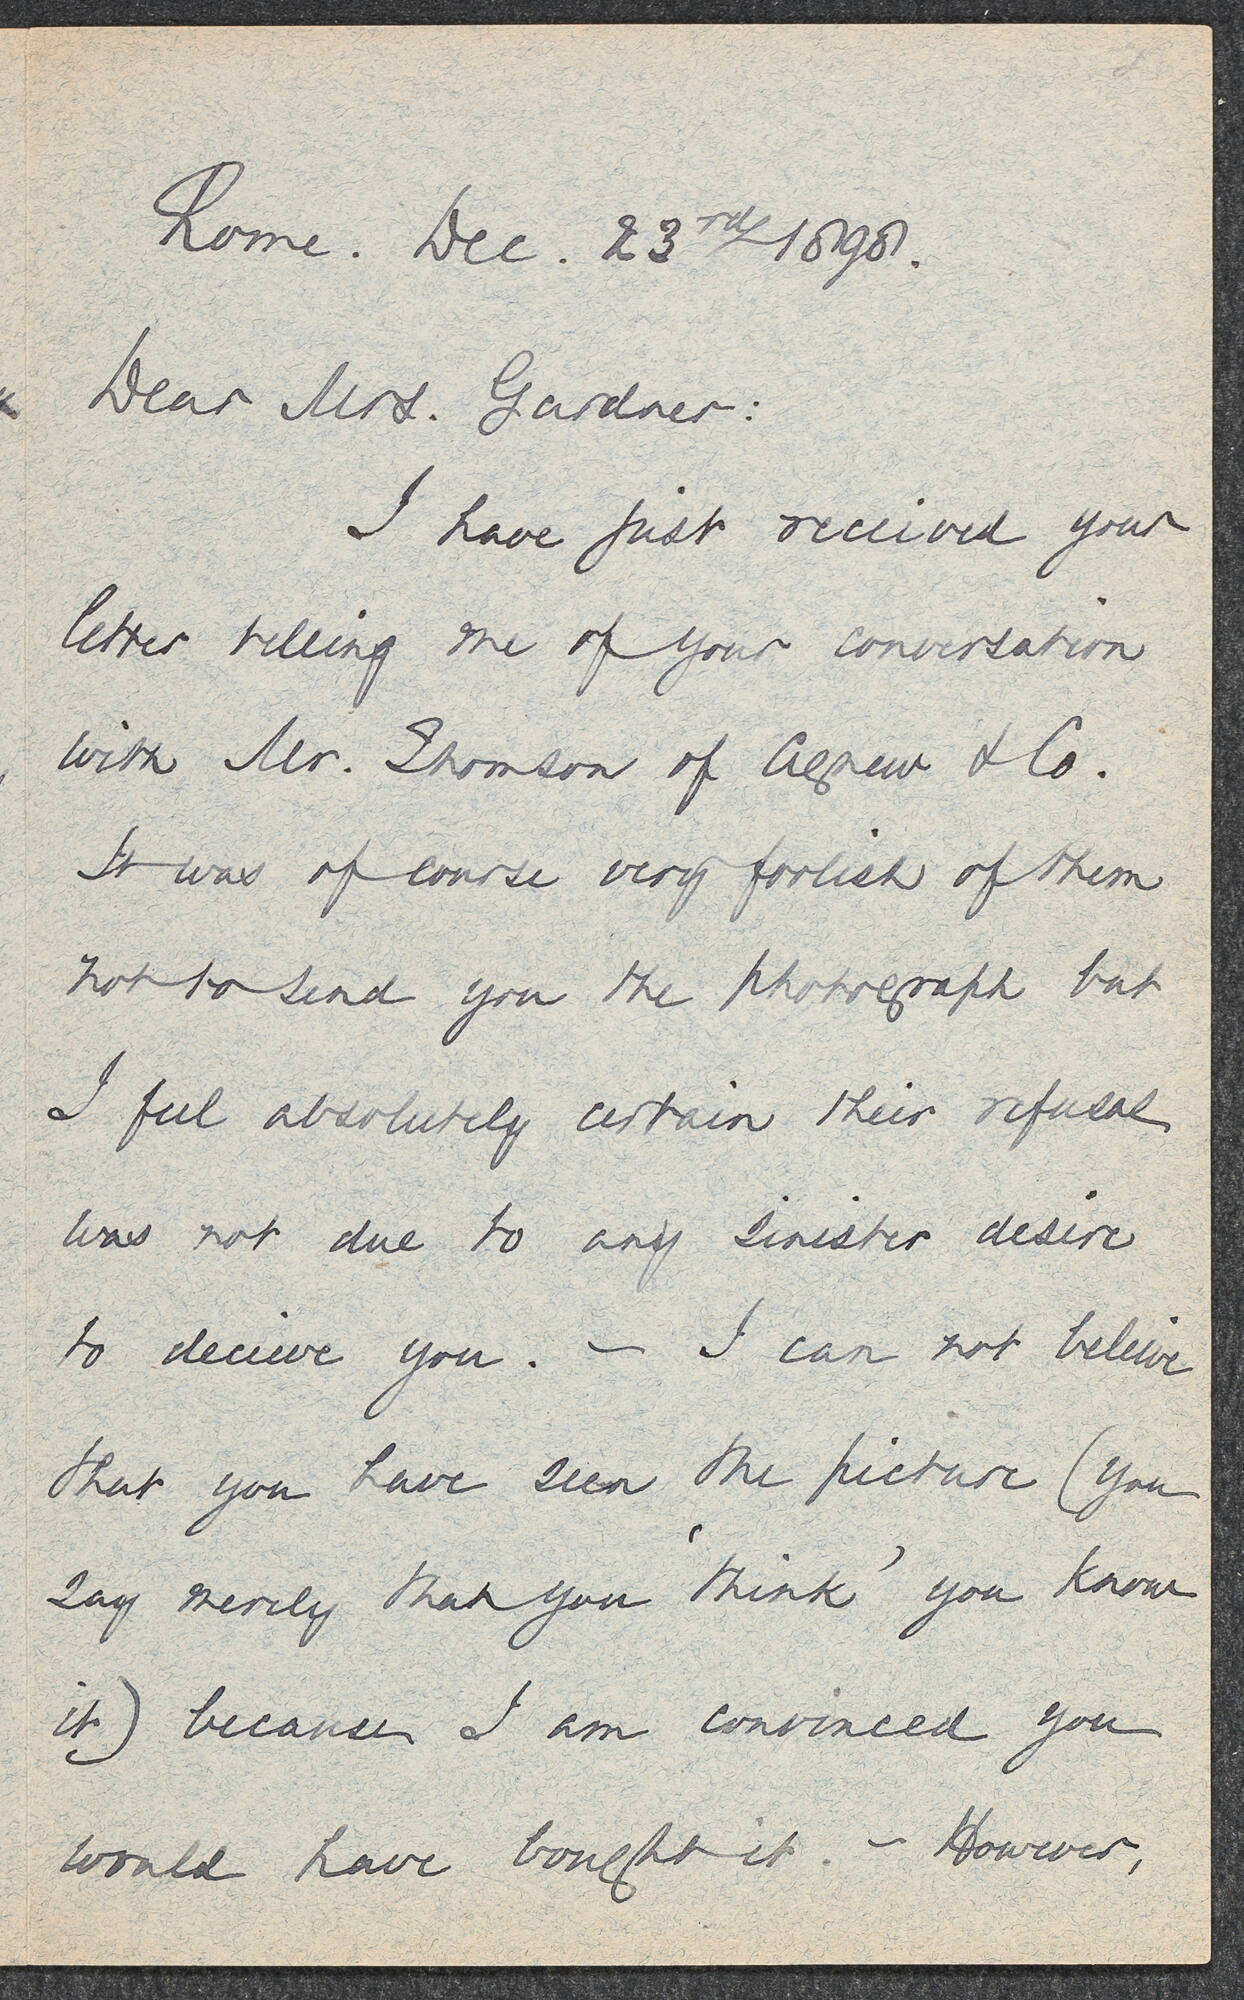 Rome. Dec. 23rd 1898.
Dear Mrs. Gardner:
I have just received your
letter telling me of your conversation
with Mr. Thomson of Agnew & Co.
It was of course very foolish of them
not to send you the photograph but
I feel absolutely certain their refusal
was not due to any sinister desire
to decieve you. – I can not beleive
that you have seen the picture (you
say merely that you 'think' you know
it) because I am convinced you
would have bought it. – However,